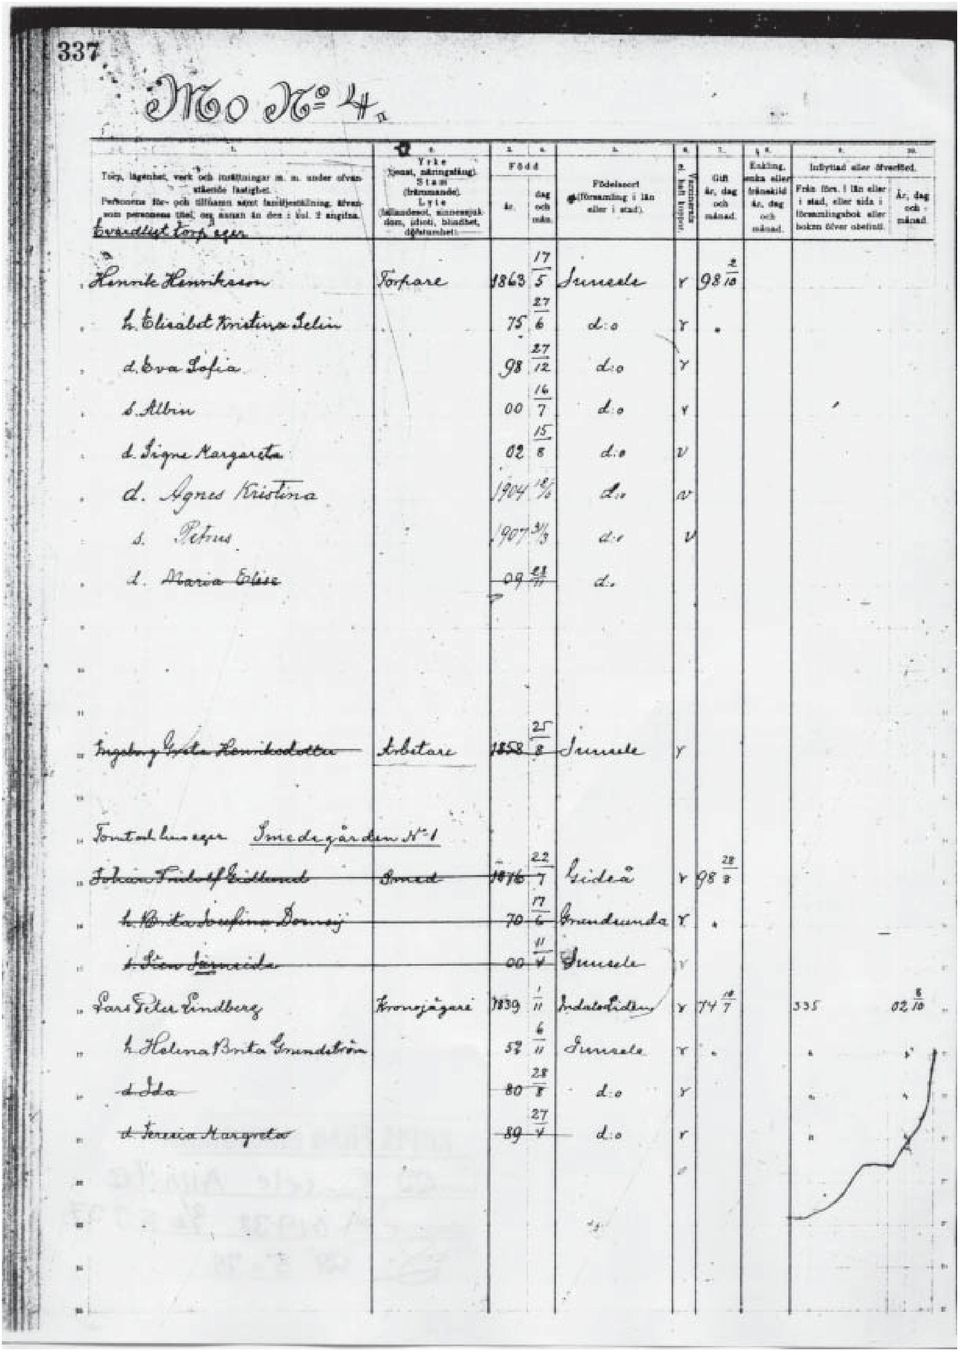 337
Mo No 4.
1. 2. 3. 4. 5. 6. 7. 8. 9. 10.
Torp, lägenhet, verk och inrättningar m. m. under ofvanstående fastighet.
Personens för- och tillnamn samt familjeställning, äfvensom personens titel, om annan än den i kol. 2 angifna.
Yrke (tjenst, näringsfång). Stam (främmande). Lyte (fallandesot, sinnessjukdom, idioti, blindhet, döfstumhet).
Född
år. dag och mån.
Födelseort (församling i län eller i stad).
Gift år, dag och månad.
Enkling, enka eller frånskild år, dag och månad.
Inflyttad eller öfverförd.
Från förs. i län eller i stad, eller sida i församlingsbok eller boken öfver obefintl.
År, dag och månad.
Evärdligt torp eger
Henrik Henriksson Torpare 1863 17/5 Junsele v 98 2/10
h. Elisabet Kristina Selin 75 27/6 d:o v "
d. Eva Sofia 98 27/12 d:o v
s. Albin 00 16/7 d:o v
d. Signe Margareta 02 15/8 d:o v
d. Agnes Kristina 1904 d:o v
s. Petrus 1907 31/3 d:o v
d. Maria Elise 09 23/11 d:o
Ingeborg Greta Henriksdotter Arbetare 1858 25/8 Junsele v
Tomt och hus eger Smedsgården No 1
Johan Fridolf Eidlund Smed 1876 22/7 Gideå v 98 28/3
h. Brita Josefina Dornsij 70 17/6 Grundsunda v "
s. Sten 00 11/4 Junsele v
Lars Peter Lindberg Kronojägare 1839 1/11 Indalsliden v 74 10/7 335 02 8/10
h. Helena Brita Grundström 52 6/11 Junsele v " " "
d. Ida 80 28/8 d:o v " "
d. Teresia Margreta 89 27/4 d:o v " "